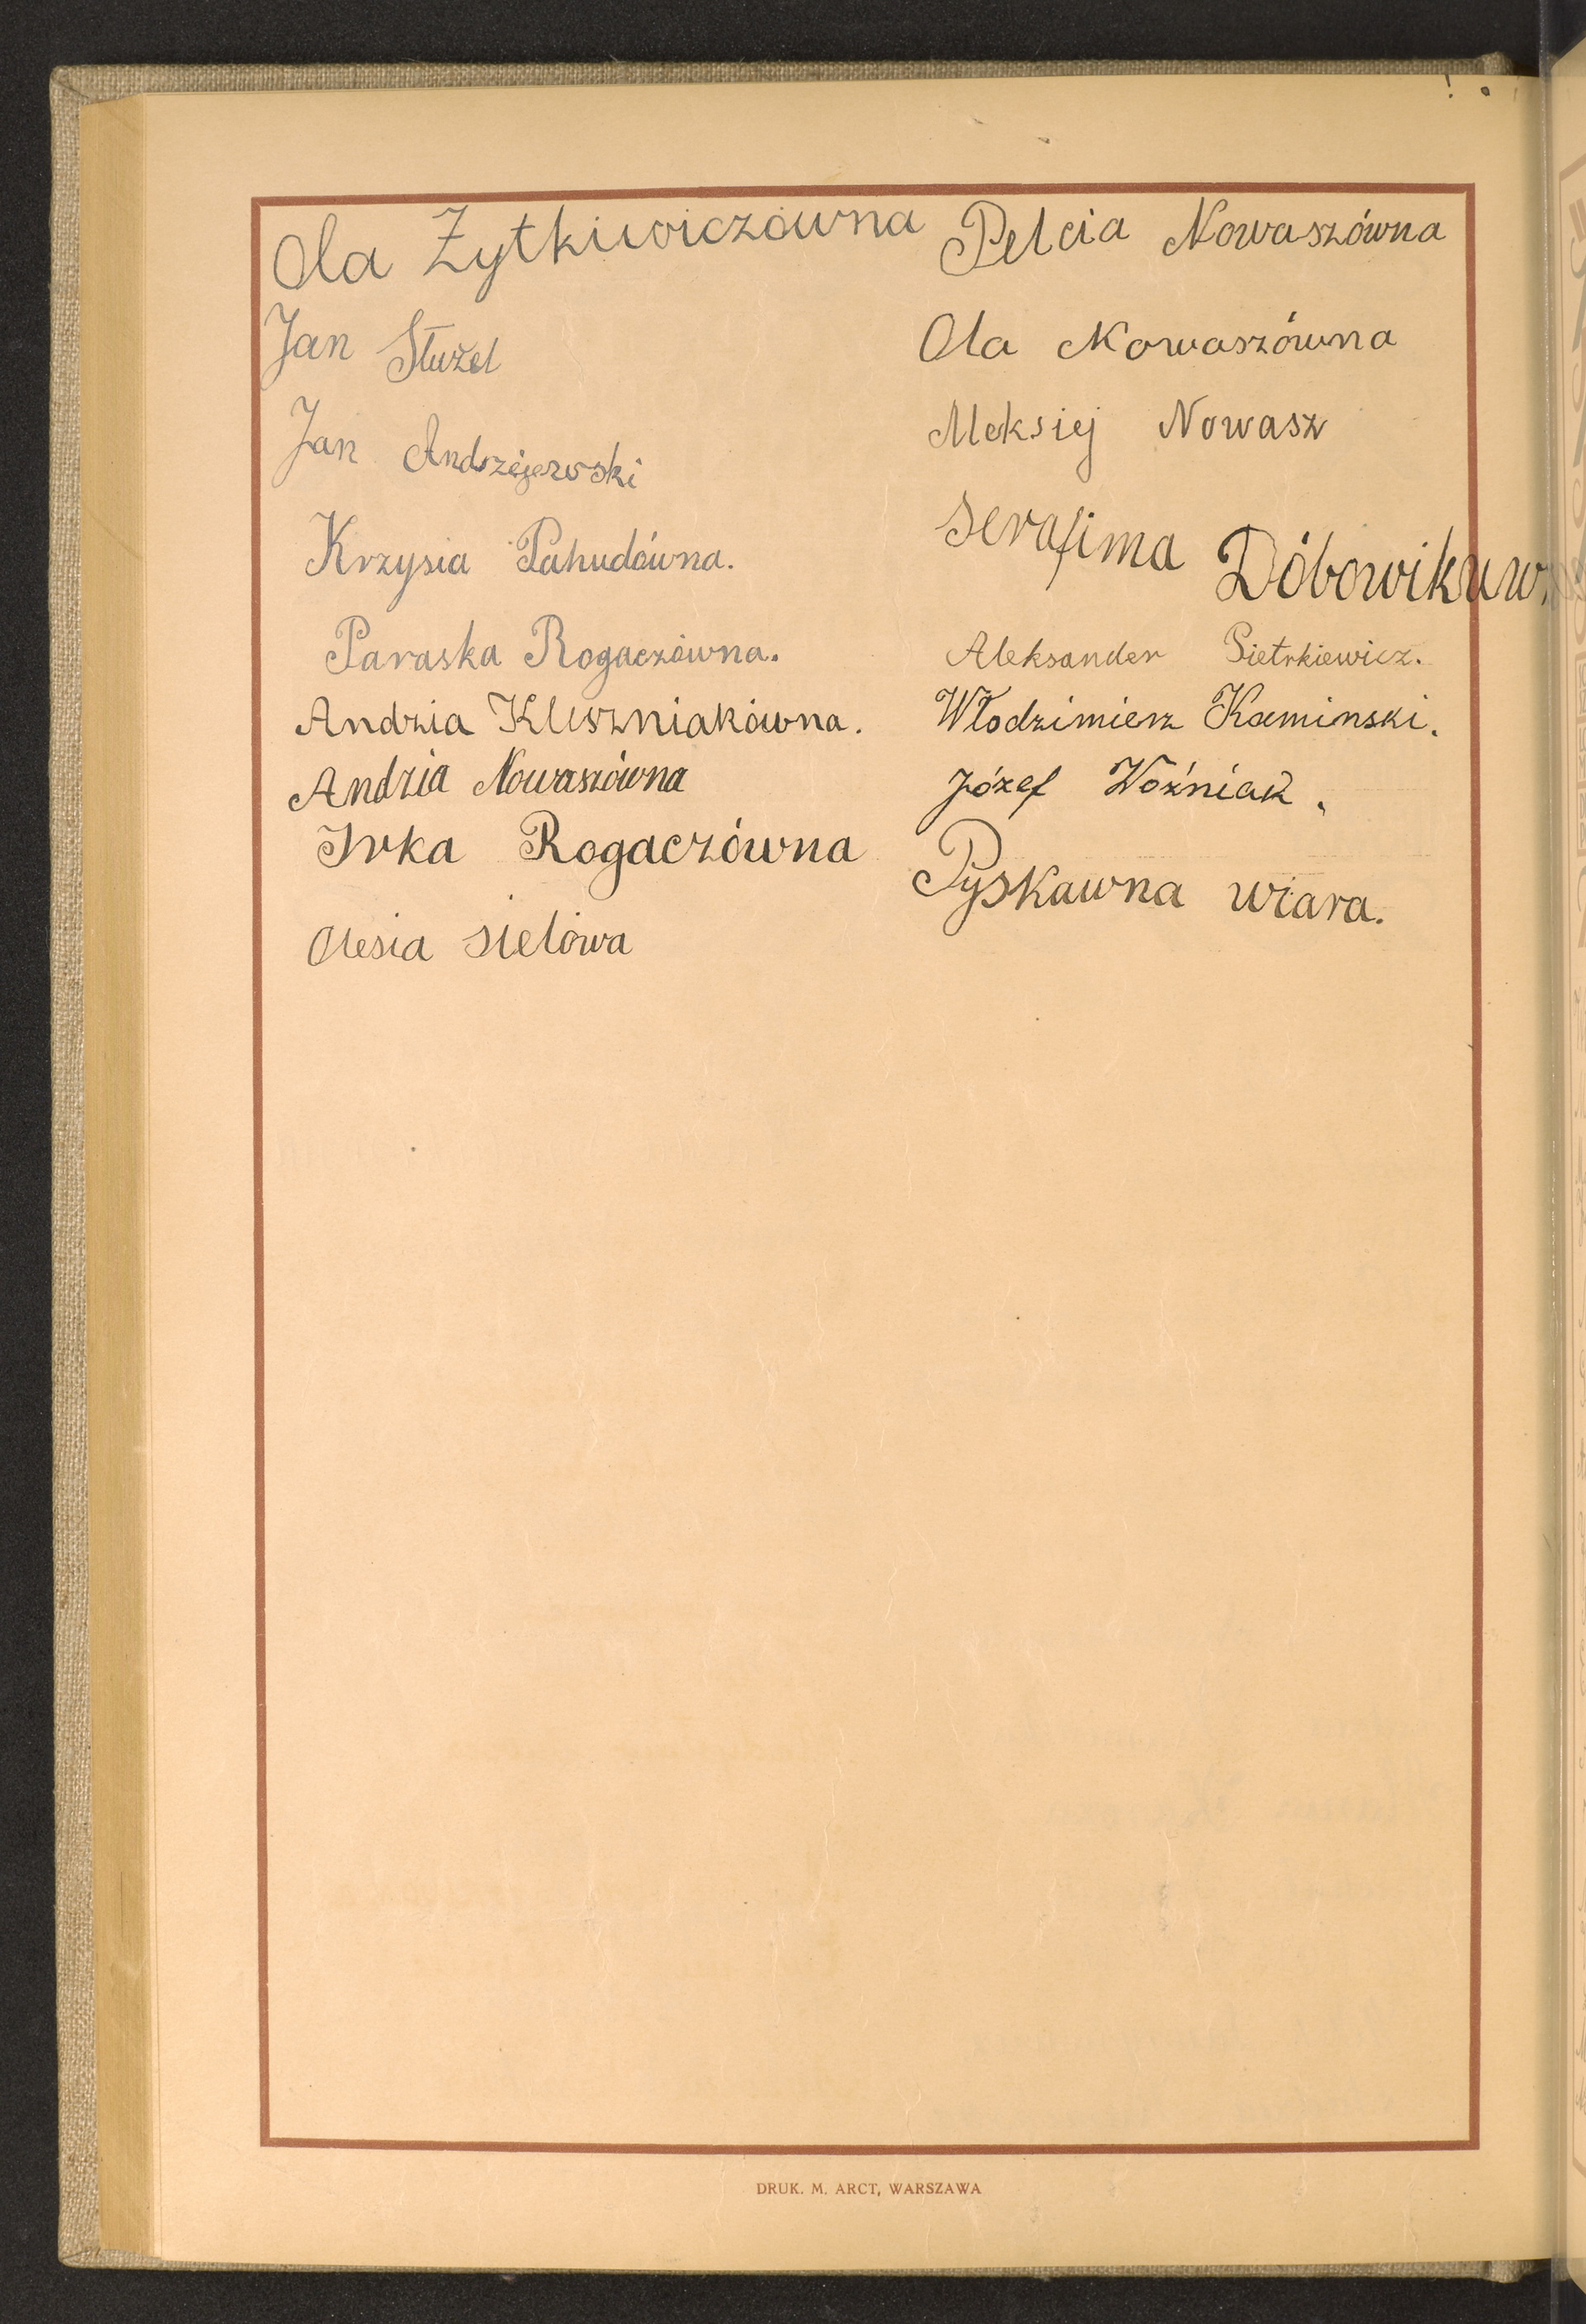 Ola Żytkiewiczówna
Jan Stużel
Jan Andrzejewski
Krzysia Pahudówna.
Paraska Rogaczówna.
Andzia Kluszniakówna.
Andzia Nowaszówna
Irka Rogaczówna
Olesia Sielowa
Pelcia Nowaszówna
Ola Nowaszówna
Aleksiej Nowasz
Serafima Dóbowikuw.
Aleksander Pietrkiewicz.
Włodzimierz Kaminski.
Józef Woźniak.
Pyskawna wiara.
DRUK. M. ARCT, WARSZAWA